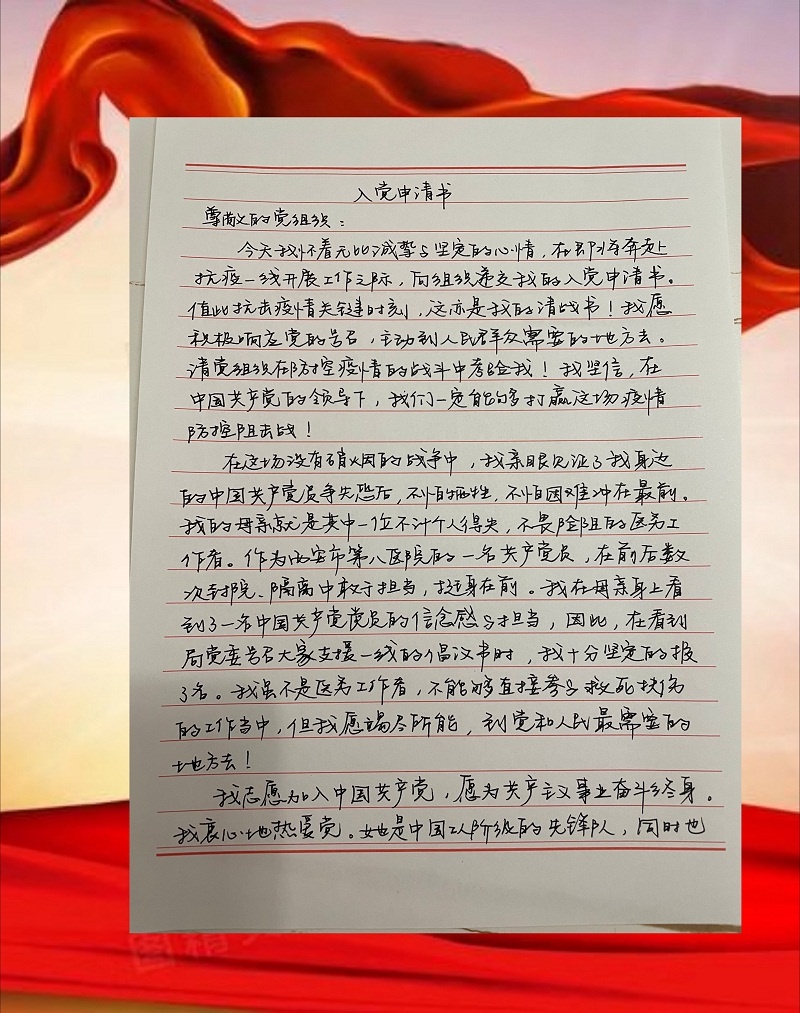 入党申请书
尊敬的党组织：
今天我怀着无比诚挚与坚定的心情，在即将奔赴
抗疫一线开展工作之际，向组织递交我的入党申请书。
值此抗击疫情关键时刻，这亦是我的请战书！我愿
积极响应党的号召，主动到人民群众需要的地方去。
请党组织在防控疫情的战斗中考验我！我坚信，在
中国共产党的领导下，我们一定能够打赢这场疫情
防控阻击战！
在这场没有硝烟的战争中，我亲眼见证了我身边
的中国共产党员争先恐后，不怕牺牲，不怕困难冲在最前。
我的母亲就是其中一位不计个人得失，不畏险阻的医务工
作者。作为西安市第八医院的一名共产党员，在前后数
次封院、隔离中敢于担当，挺身在前。我在母亲身上看
到了一名中国共产党党员的信念感与担当，因此，在看到
局党委号召大家支援一线的倡议书时，我十分坚定的报
了名。我虽不是医务工作者，不能够直接参与救死扶伤
的工作当中，但我愿竭尽所能，到党和人民最需要的
地方去！
我志愿加入中国共产党，愿为共产主义事业奋斗终身。
我衷心地热爱党。她是中国工人阶级的先锋队，同时也